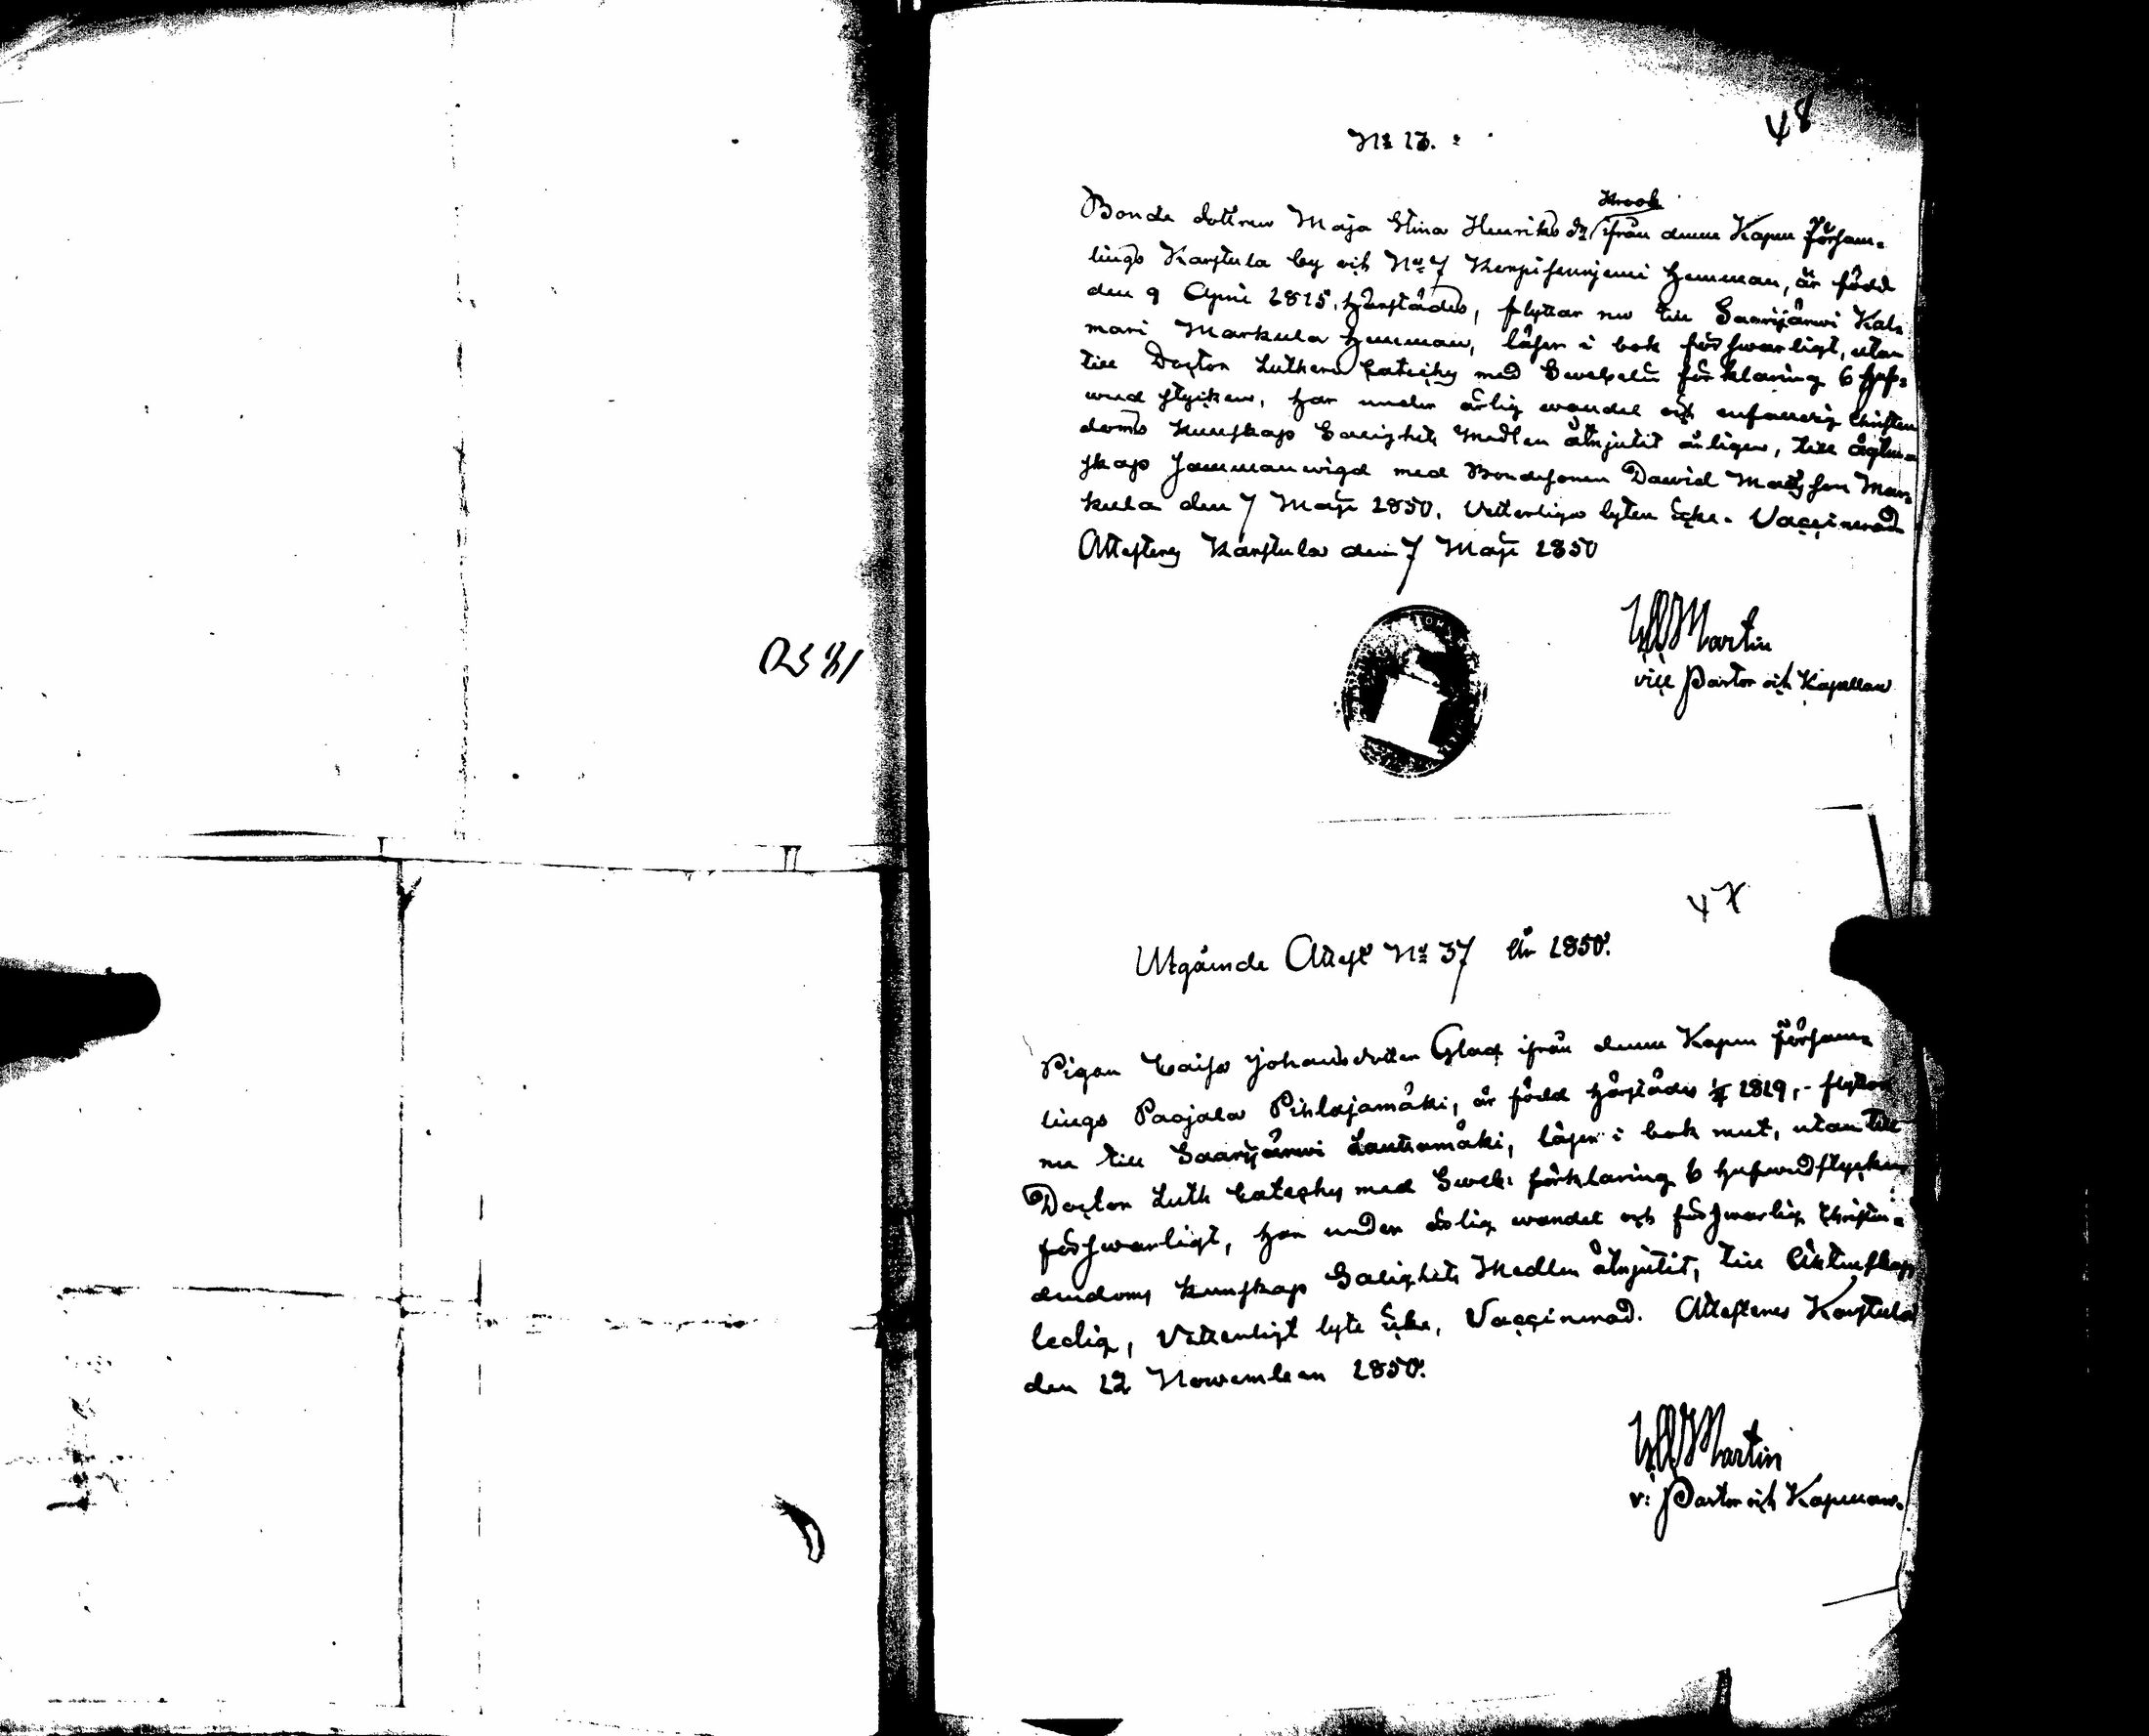 48
No 13.
Krook
Bonde dottren Maja Stina Henriks dr ifrån denne Kapell Församl
lings Karstula by och No 7 hemman, är född
den 9 April 1815. härstädes, flyttar nu till Saarijärwi Kal=
mari Markula hemman, läser i bok förswarligt, utan
till Doctor Lutheri Cateches med Swebelii förklaring 6 huf=
wud stycken, har under ärlig wandel och enfaldig Christen
doms kunskap Salighets Medlen åtnjutit årligen, till ägten=
skap samman wigd med Bondesonen Dawid Matsson Mar=
kula den 7 Maji 1850. Vetterligen lyten icke. Vaccinerad
Attesteres Karstula den 7 Maji 1850
Martin
vice Pastor och Kapellan
47
Utgående Attest No 37 År 1850.
Pigan Caisa Johansdotter Glad ifrån denne Kapell Församl=
lings Paajala Pihlajamäki, är född härstädes 1819, flyttar
nu till Saarijärwi Lautamäki, läser i bok nut, utan till
Doctor Luth Cateches med Sweb: förklaring 6 hufwudstycken
förswarligt, har under ärlig wandel och förswarlig Christen=
dendoms kunskap Salighets Medlen åtnjutit, till Äktenskap
ledig, Vetterligt lyte icke, Vaccinerad. Attesteres Karstula
den 12 November 1850.
Martin
v: Pastor och Kapellan.